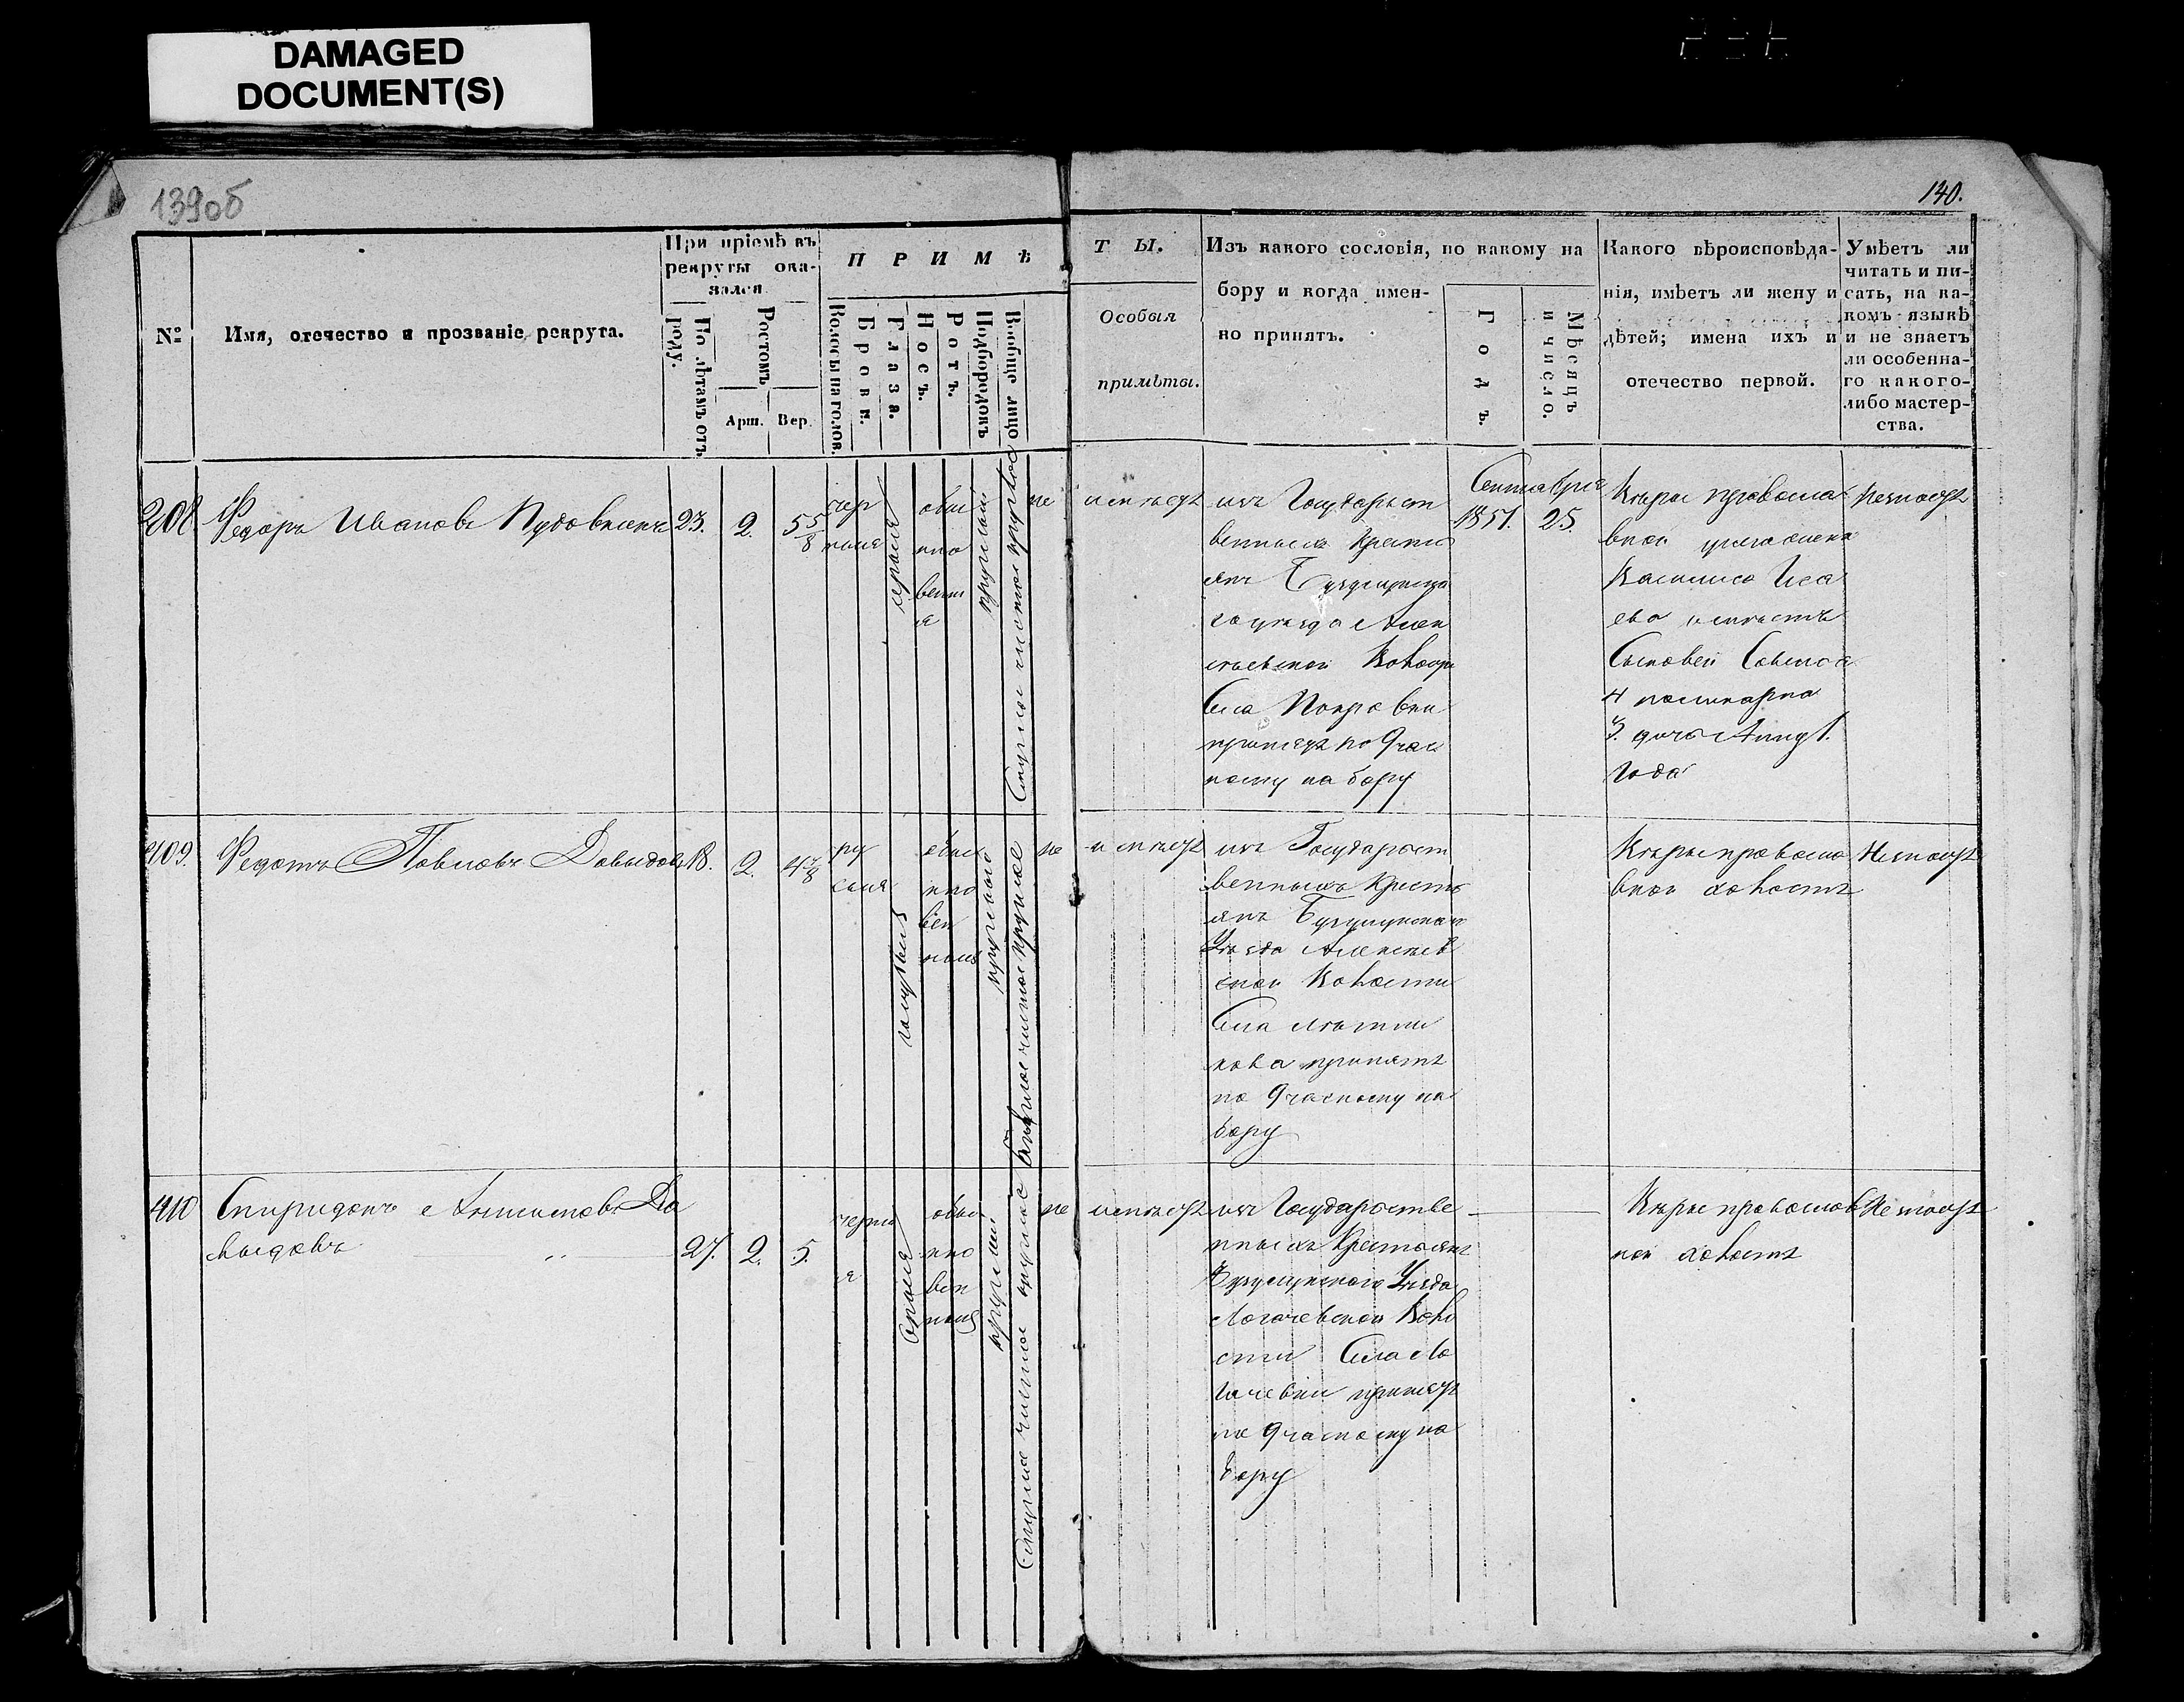 DAMAGED
DOCUMENT(S)
139об
140.
№
Имя, отечество и прозваніе рекрута.
При пріемѣ въ
рекруты ока-
зался
По лѣтамъ отъ
роду.
Ростомъ
Арш.
Вер.
П Р И М Ѣ
Волосы на головѣ.
Брови.
Глаза.
Носъ.
Ротъ.
Подбородокъ
Вообще лицо
Т Ы.
Особыя
примѣты.
Изъ какого сословія, по какому на
бору и когда имен-
но принятъ.
Годъ.
Мѣсяцъ
и число.
Какого вѣроисповѣда-
нія, имѣетъ ли жену и
дѣтей; имена ихъ и
отечество первой.
Умѣетъ ли
читать и пи-
сать, на ка-
комъ языкѣ
и не знаетъ
ли особенна-
го какого-
либо мастер-
ства.
Федоръ Ивановъ
23.
2.
5 5/8
чер
ныя
серыя
обык
но
венны
я
круглый
Смуглое чистое круглое
не
имѣетъ
изъ Государст
венныхъ Кресть
янъ Бузулукска
го уѣзда Алек
сѣевской Волости
Села Покровки
принятъ по 9 час
ному набору
Сентября
1851.
25.
Вѣры правосла
вной у него жена
Исаева
сыновей
4
3. дочь Анну 1.
года
Не знаетъ
409.
Федотъ Павловъ Давыдовъ
18.
2.
4 7/8
ру
сыя
голубыя
обык
но
вен
ныя
круглый
чистое круглое
не
имѣетъ
изъ Государст
венныхъ Кресть
янъ Бузулукскаго
Уѣзда Алексѣев
ской Волости
Села
принятъ
по 9 частному на
бору
Вѣры правосла
вной холостъ
Не знаетъ
410
Спиридонъ Да
выдовъ
27.
2.
5.
черны
я
обык
но
вен
ныя
круглый
Смуглое чистое круглое
не
имѣетъ
изъ Государстве
нныхъ Крестьянъ
Бузулукскаго Уѣзда
Логачевской Воло
сти Села Ло
гачевки принятъ
по 9 частному на
бору
Вѣры православ
ной холостъ
Не знаетъ